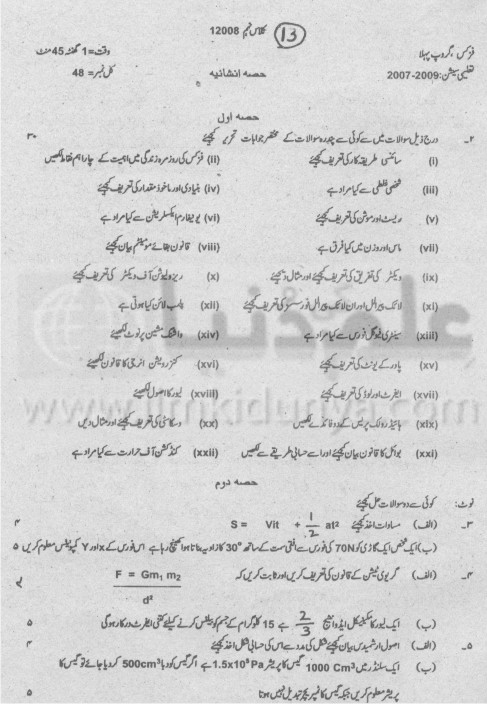 کلاس نہم 12008 (13)
فزکس ،گروپ پہلا
وقت=1 گھنٹہ 45 منٹ
تعلیمی سیشن: 2007-2009
حصہ انشائیہ
کل نمبر= 48
حصہ اول
۲۔ درج ذیل سوالات میں سے کوئی سے پندرہ سوالات کے مختصر جوابات تحریر کیجئے ۳۰
(i) سائنسی طریقہ کار کی تعریف کیجئے (ii) فزکس کی روزمرہ زندگی میں اہمیت کے چار اہم نقاط لکھیں
(iii) شخصی غلطی سے کیا مراد ہے (iv) بنیادی اور ماخوذ مقدار کی تعریف کیجئے
(v) ریسٹ اور موشن کی تعریف کیجئے (vi) یونیفارم ایکسلریشن سے کیا مراد ہے
(vii) ماس اور وزن میں کیا فرق ہے (viii) قانون بقائے مومینٹم بیان کیجئے
(ix) ویکٹر کی تفریق کی تعریف کیجئے اور مثال دیجئے (x) ریزولیوشن آف ویکٹر کی تعریف کیجئے
(xi) لائک پیرالل اور ان لائک پیرالل فورسسز کی تعریف کیجئے (xii) پلمب لائن کیا ہوتی ہے
(xiii) سینٹری فیوگل فورس سے کیا مراد ہے (xiv) واشنگ مشین پر نوٹ لکھیئے
(xv) پاور کے یونٹ کی تعریف کیجئے (xvi) کنزرویشن انرجی کا قانون لکھیئے
(xvii) ایفرٹ اور لوڈ کی تعریف کیجئے (xviii) لیور کا اصول لکھیئے
(xix) ہائیڈرولک پریس کے دو فائدے لکھیں (xx) وسکاسٹی کی تعریف کیجئے اور مثال دیں
(xxi) بوائل کا قانون بیان کیجئے اور اسے حسابی طریقے سے لکھیں (xxii) کنڈکشن آف حرارت سے کیا مراد ہے
حصہ دوم
نوٹ: کوئی سے دو سوالات حل کیجئے
۳۔ (الف) مساوات اخذ کیجئے S = Vit + 1/2 at² ۴
(ب) ایک شخص ایک گاڑی کو 70N کی فورس سے افقی سمت کے ساتھ 30° کا زاویہ بناتا ہوا کھینچ رہا ہے اس فورس کے x اور Y کمپونینٹس معلوم کریں ۵
۴۔ (الف) گریوی ٹیشن کے قانون کی تعریف کریں اور ثابت کریں کہ F = Gm₁ m₂ / d²
(ب) ایک لیور کا مکینیکل ایڈوانٹیج 2/3 ہے 15 کلوگرام کے جسم کو بیلنس کرنے کیلئے کتنی ایفرٹ درکار ہوگی ۵
۵۔ (الف) اصول ارشمیدس بیان کیجئے شکل کی مدد سے اس کی حسابی شکل اخذ کیجئے ۴
(ب) ایک سلنڈر میں 1000 Cm³ گیس کا پریشر 1.5x10⁵ Pa ہے اگر گیس کو دبا 500cm³ کر دیا جائے تو گیس کا
پریشر معلوم کریں جبکہ گیس کا ٹمپریچر تبدیل نہیں ہوتا ۵
علم کی دنیا
www.ilmkidunya.com